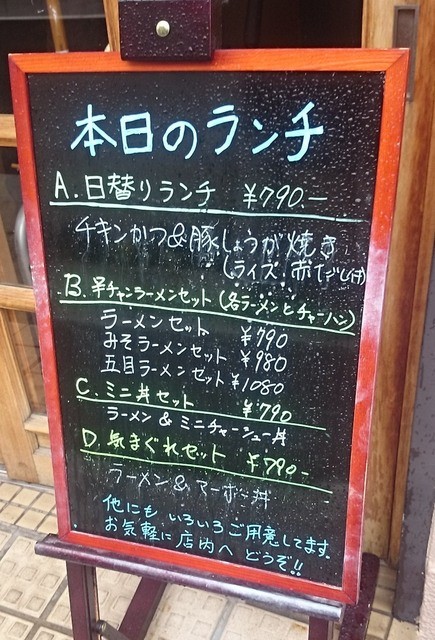 本日のランチ
A.日替りランチ ¥790.-
チキンかつ&豚しょうが焼き
(ライス、赤だし付)
B.半チャンラーメンセット(各ラーメンとチャーハン)
ラーメンセット ¥790
みそラーメンセット ¥980
五目ラーメンセット ¥1080
C.ミニ丼セット ¥790
ラーメン&ミニチャーシュー丼
D.気まぐれセット ¥790-
ラーメン&マーボー丼
他にも いろいろご用意してます。
お気軽に店内へ どうぞ!!